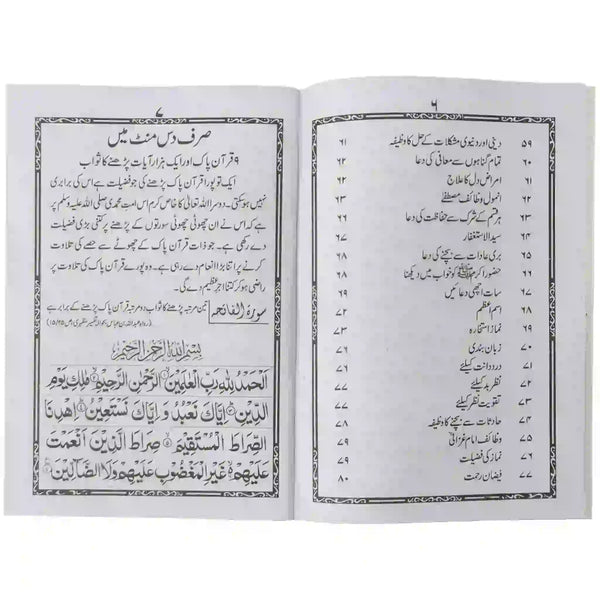 ۶
۵۹ دینی اور دنیوی مشکلات کے حل کا وظیفہ ۶۱
۶۰ تمام گناہوں سے معافی کی دعا ۶۲
۶۱ امراض دل کا علاج ۶۲
۶۲ انمول وظائف مصطفےٰ
۶۳ ہر قسم کے شرک سے حفاظت کی دعا
۶۴ سید الاستغفار ۶۷
۶۵ بری عادات سے بچنے کی دعا ۶۸
۶۶ حضور اکرم ﷺ کو خواب میں دیکھنا ۶۸
۶۷ سات اچھی دعائیں ۶۹
۶۸ اسم اعظم ۷۲
۶۹ نماز استخارہ ۷۳
۷۰ زبان بندی ۷۶
۷۱ درد دانت کیلئے ۷۶
۷۲ نظر بد کیلئے
۷۳ تقویت نظر کیلئے ۷۷
۷۴ حادثات سے بچنے کا وظیفہ
۷۵ وظائف امام غزالی
۷۶ نماز کی فضیلت ۷۹
۷۷ فیضان رحمت ۸۰
۷
صرف دس منٹ میں
۹ قرآن پاک اور ایک ہزار آیات پڑھنے کا ثواب
ایک تو پورا قرآن پاک پڑھنے کی جو فضیلت ہے اس کی برابری
نہیں ہو سکتی۔ دوسرا اللہ تعالیٰ کا خاص کرم امت محمدی صلی اللہ علیہ وسلم پر
ہے کہ اس نے ان چھوٹی چھوٹی سورتوں کے پڑھنے پر کتنی بڑی فضیلت
دے رکھی ہے۔ جو ذات قرآن پاک کے چھوٹے سے حصے کی تلاوت
کرنے پر اتنا بڑا انعام دے رہی ہے۔ وہ پورے قرآن پاک کی تلاوت پر
راضی ہو کر کتنا اجر عظیم دے گی۔
سورۃ الفاتحہ تین مرتبہ پڑھنے کا ثواب دو مرتبہ قرآن پاک پڑھنے کے برابر ہے
بسم الله الرحمن الرحيم
اَلْحَمْدُ لِلّٰهِ رَبِّ الْعٰلَمِيْنَ الرَّحْمٰنِ الرَّحِيْمِ مٰلِكِ يَوْمِ
الدِّيْنِ اِيَّاكَ نَعْبُدُ وَ اِيَّاكَ نَسْتَعِيْنُ اِهْدِنَا
الصِّرَاطَ الْمُسْتَقِيْمَ صِرَاطَ الَّذِيْنَ اَنْعَمْتَ
عَلَيْهِمْ غَيْرِ الْمَغْضُوْبِ عَلَيْهِمْ وَلَا الضَّآلِّيْنَ